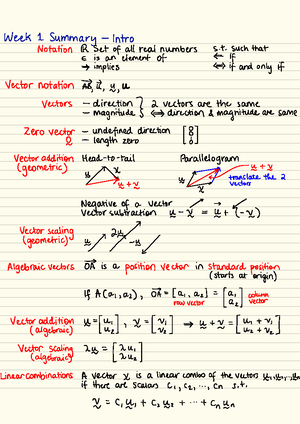 Week 1 Summary – Intro
Notation ℝ Set of all real numbers s.t. such that
∈ is an element of ⇐ if
→ implies ⇔ if and only if
Vector notation AB, u, u
Vectors – direction } 2 vectors are the same
– magnitude ⇔ direction & magnitude are same
Zero vector – undefined direction [0 0 0]
0 – length zero
Vector addition Head-to-tail Parallelogram
(geometric) u v u+v u v u+v translate the 2 vectors
Negative of a vector
Vector subtraction u - v = u + (-v)
Vector scaling 2u
(geometric) u -u
Algebraic vectors OA is a position vector in standard position
(starts at origin)
If A(a₁, a₂), OA = [a₁, a₂] = [a₁ a₂] column vector
row vector
Vector addition u = [u₁ u₂], v = [v₁ v₂] → u + v = [u₁ + v₁ u₂ + v₂]
(algebraic)
Vector scaling λu = [λu₁ λu₂]
(algebraic)
Linear combinations A vector v is a linear combo of the vectors u₁, u₂, ..., uₙ
if there are scalars c₁, c₂, ..., cₙ s.t.
v = c₁u₁ + c₂u₂ + ... + cₙuₙ